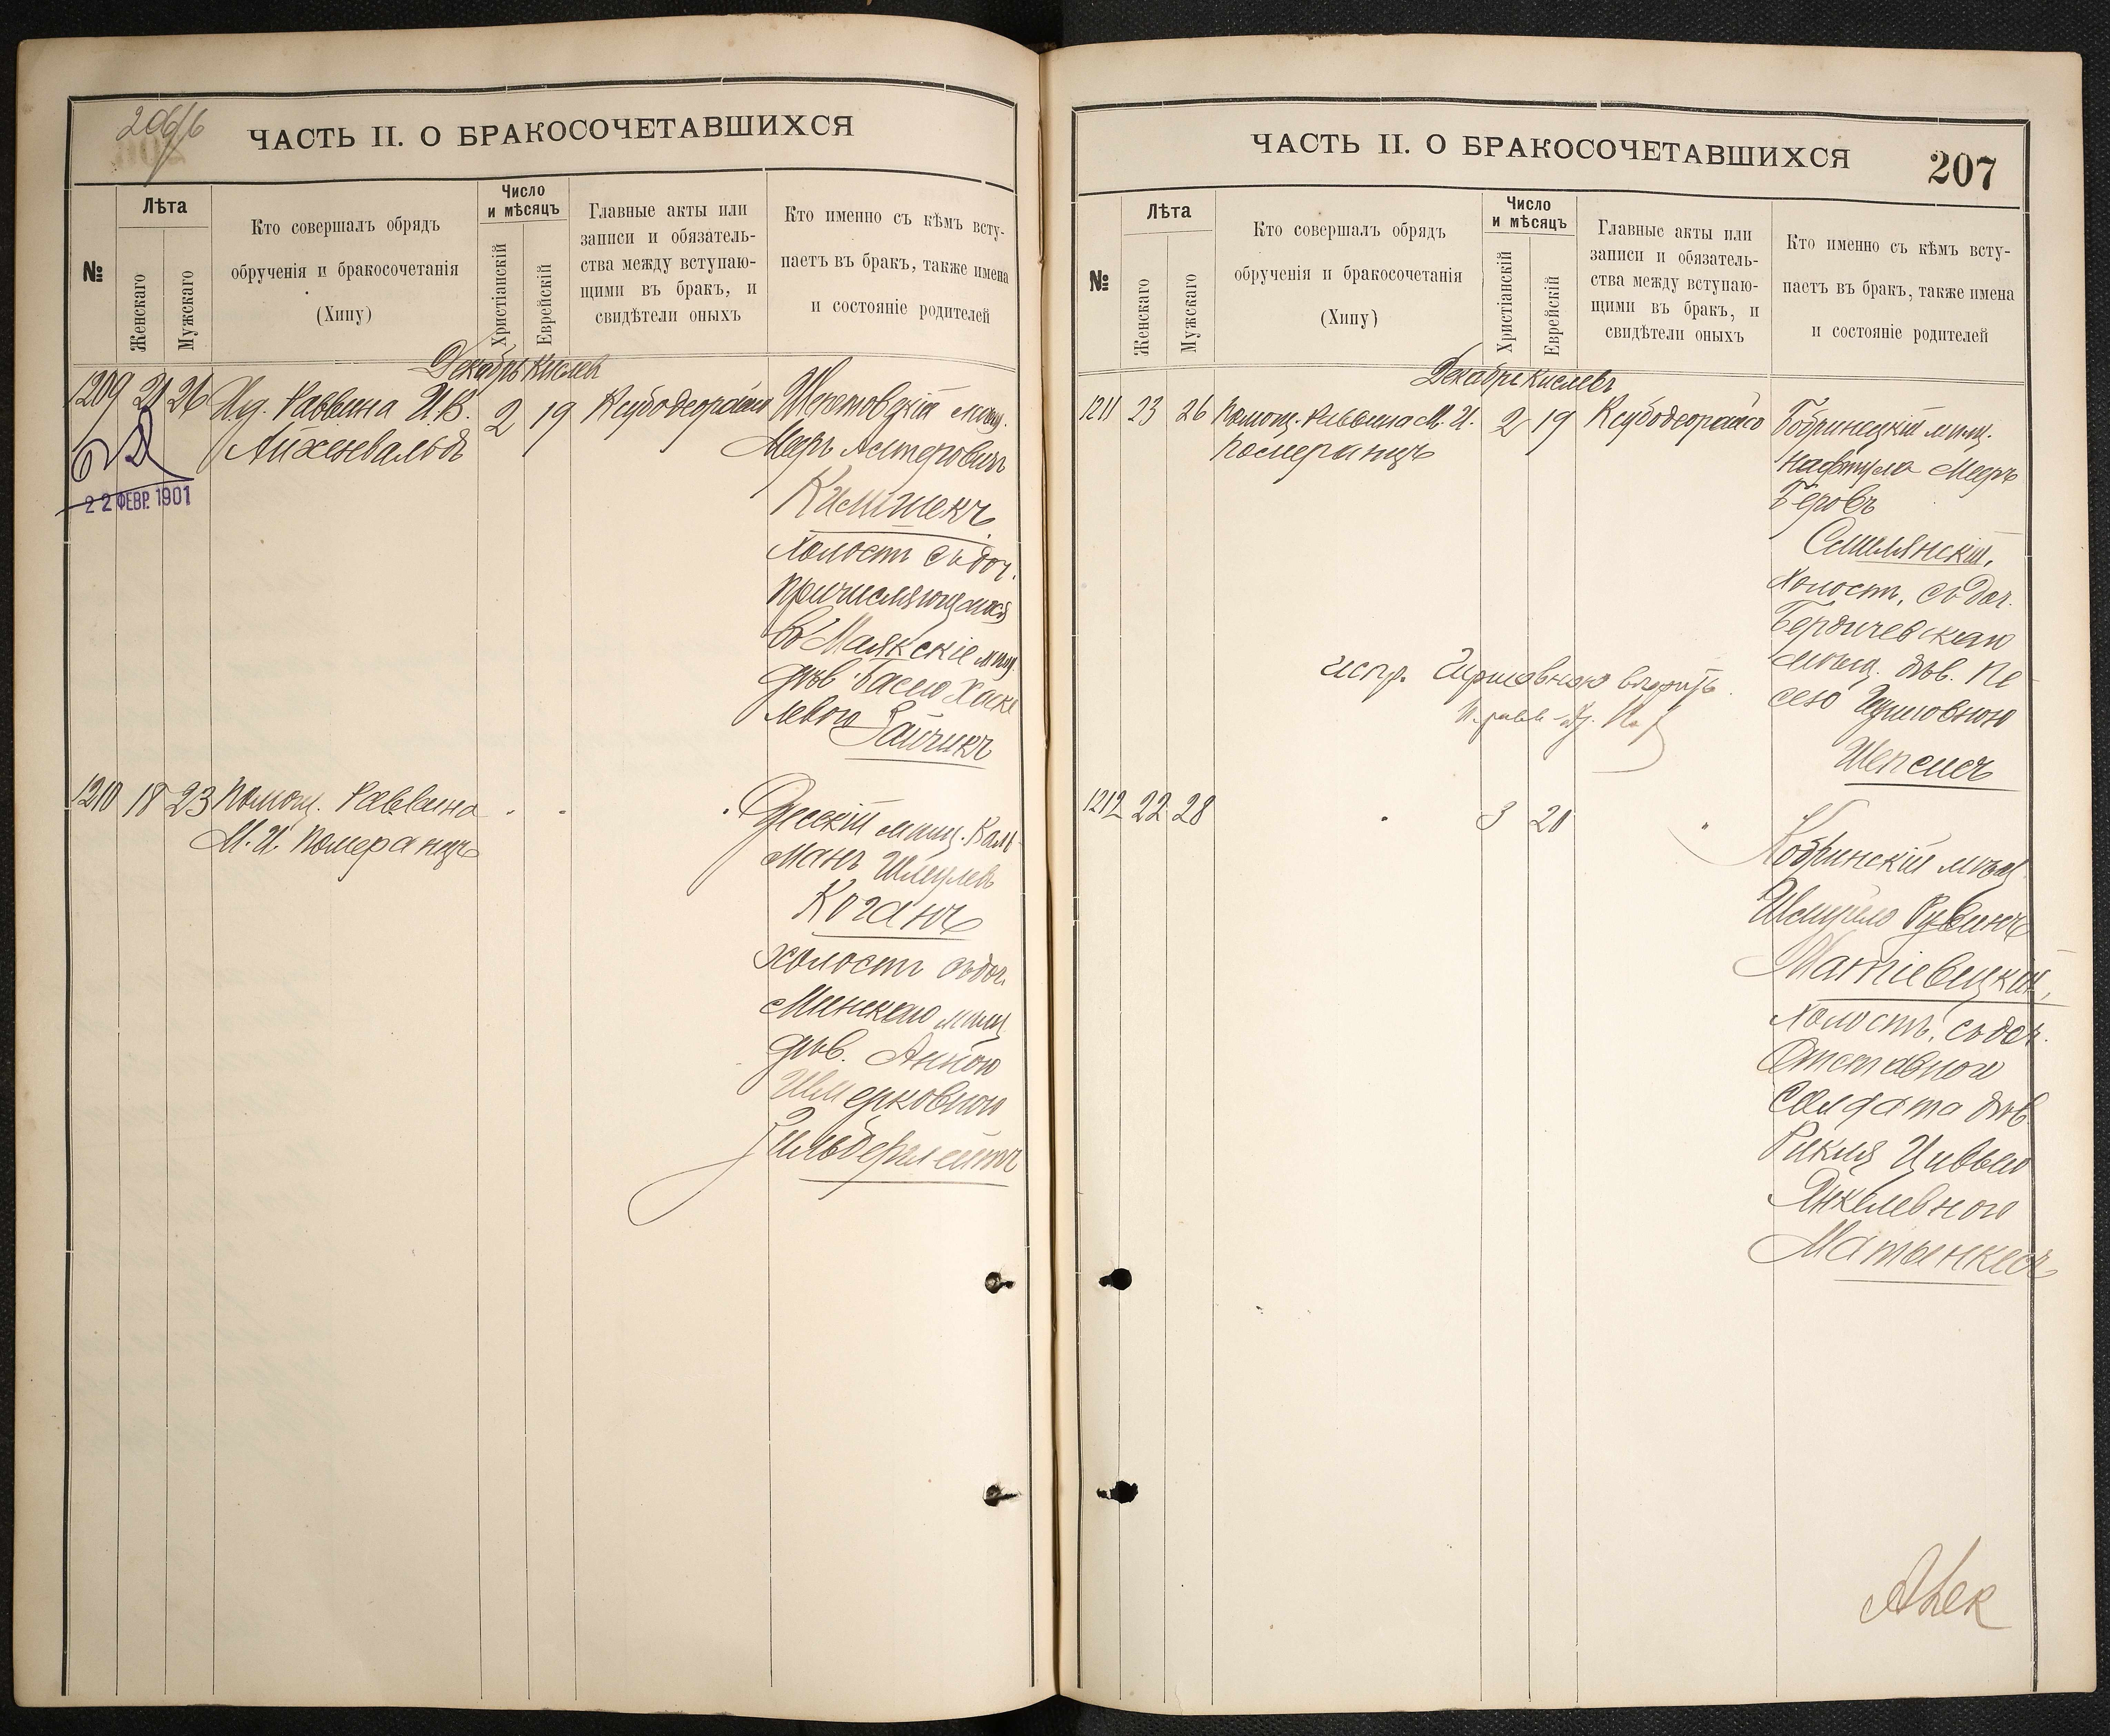 206/6
ЧАСТЬ II. О БРАКОСОЧЕТАВШИХСЯ
№
Лѣта
Женскаго
Мужскаго
Кто совершалъ обрядъ
обрученія и бракосочетанія
(Хипу)
Число
и мѣсяцъ
Христіанскій
Еврейскій
Главные акты или
записи и обязатель-
ства между вступаю-
щими въ бракъ, и
свидѣтели оныхъ
Кто именно съ кѣмъ всту-
паетъ въ бракъ, также имена
и состояніе родителей
Декабрь Кислевъ
1209 21 26 Ид. Раввина И. В.
Айхенвальдъ
2 19
22 ФЕВР. 1901
мѣщ.
Меръ
холостъ съ доч.
въ Маякскіе мѣщ
дѣв Басею Хаске
левою
Зайчикъ
1210 18 23 Помощ. Раввина
М. И. Померанцъ
Одесскій мѣщ. Каль
манъ Шмулев
Коганъ
холостъ съ доч.
Минскаго мѣщ
дѣв. Анною
Шмерковною
Зильберклейтъ
ЧАСТЬ II. О БРАКОСОЧЕТАВШИХСЯ
207
№
Лѣта
Женскаго
Мужскаго
Кто совершалъ обрядъ
обрученія и бракосочетанія
(Хипу)
Число
и мѣсяцъ
Христіанскій
Еврейскій
Главные акты или
записи и обязатель-
ства между вступаю-
щими въ бракъ, и
свидѣтели оныхъ
Кто именно съ кѣмъ всту-
паетъ въ бракъ, также имена
и состояніе родителей
Декабрь Кислевъ
1211 23 26 Помощ. Раввина М. И.
Померанцъ
2 19
Бобринецкій мѣщ.
Нафтула Меръ
Беровъ
Смилянскій,
Холостъ, съ доч.
Бердичевскаго
мѣщ. дѣв. Пе
сею Гиршовною
Шепсисъ
испр. Гиршовною вѣрить
1212 22 28
3 20
Кобринскій мѣщ
Шмуйло Рувинъ
Матіевицкій,
Холостъ, съ доч.
Отставного
Солдата дѣв.
Рикля Цивьею
Янкелевною